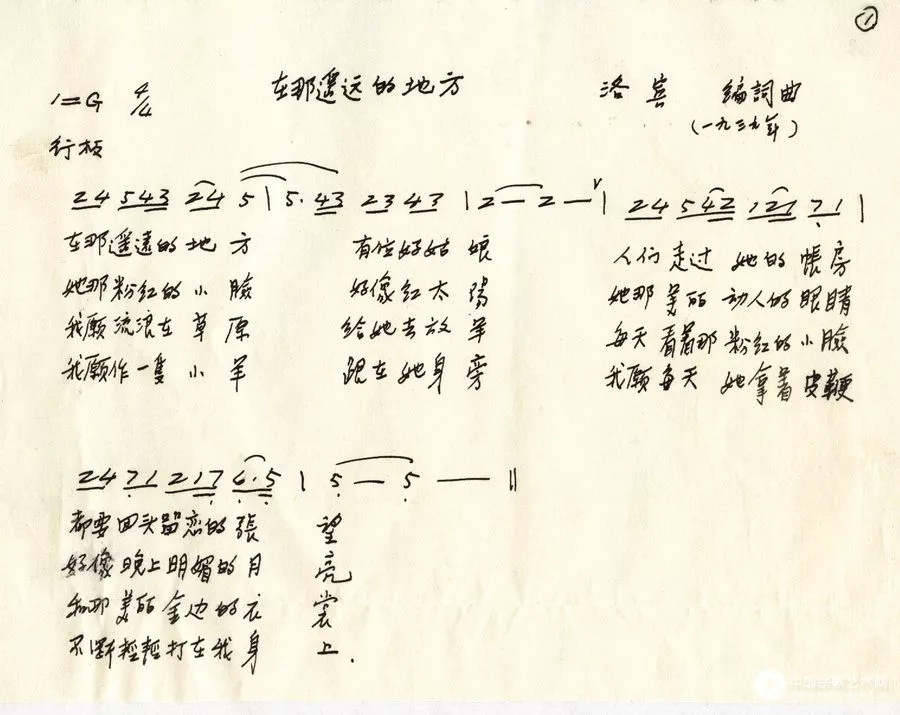 ①
1=G 4/4 在那遥远的地方 洛宾 编詞曲
(一九三九年)
行板
24 543 24 5 | 5. 43 23 43 | 2 — 2 — ∨ | 24 542 121 71 |
在那遥遠的地方 有位好姑娘 人们走过她的帳房
她那粉红的小臉 好像红太陽 她那美丽动人的眼睛
我願流浪在草原 给她去放羊 每天看着那粉红的小臉
我願作一隻小羊 跟在她身旁 我願每天她拿着皮鞭
24 71 217 6.5 | 5 — 5 — ‖
都要回头留恋的張望
好像晚上明媚的月亮
和那美丽金边的衣裳
不断輕輕打在我身上.